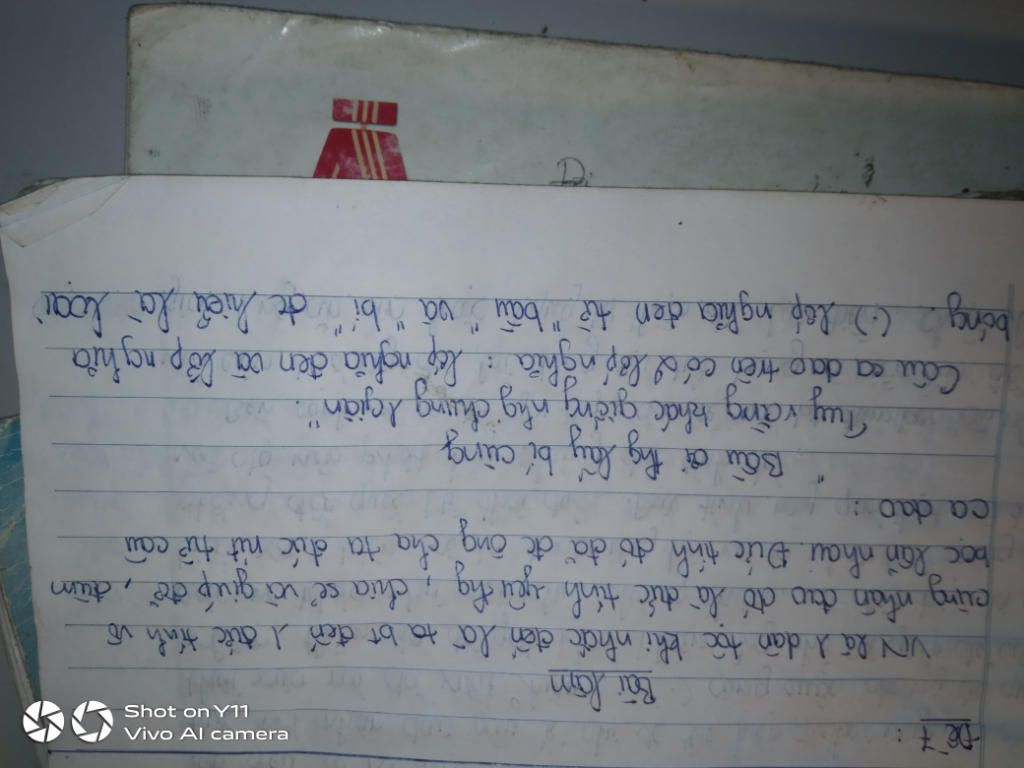 Đề 7:
Bài làm
VN là 1 dân tộc khi nhắc đến là ta bt đến 1 đức tính vô
cùng nhân đạo đó là đức tính yêu thg, chia sẻ và giúp đỡ, đùm
bọc lẫn nhau. Đức tính đó đã đc ông cha ta đúc rút từ câu
ca dao:
"Bầu ơi thg lấy bí cùng
Tuy rằng khác giống nhg chung 1 giàn".
Câu ca dao trên có 2 lớp nghĩa: lớp nghĩa đen và lớp nghĩa
bóng. (.) lớp nghĩa đen từ "bầu" và "bí" đc hiểu là loại
Shot on Y11
Vivo AI camera